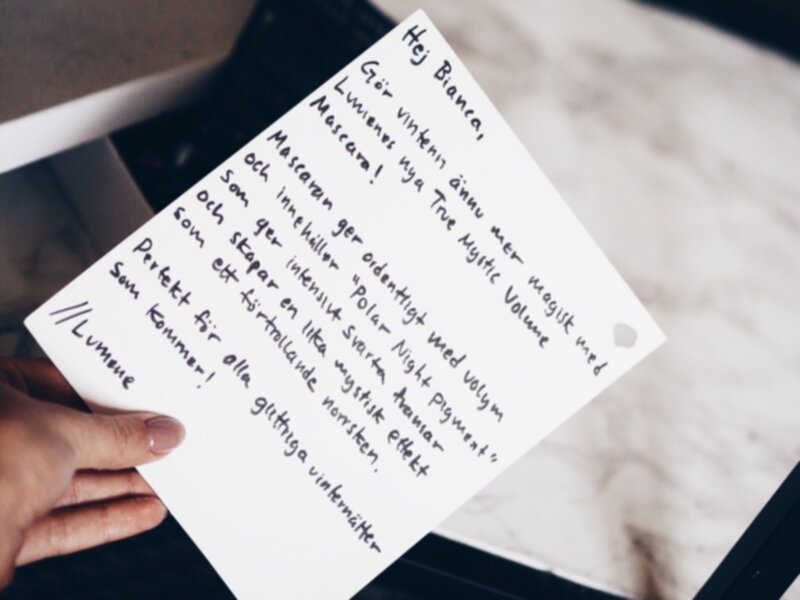 Hej Bianca,
Gör vintern ännu mer magisk med
Lumenes nya True Mystic Volume
Mascara!
Mascaran ger ordentligt med volym
och innehåller "Polar Night Pigment"
som ger intensivt svarta fransar
och skapar en lika mystisk effekt
som ett förtrollande norrsken.
Perfekt för alla glittriga vinternätter
som kommer!
//Lumene